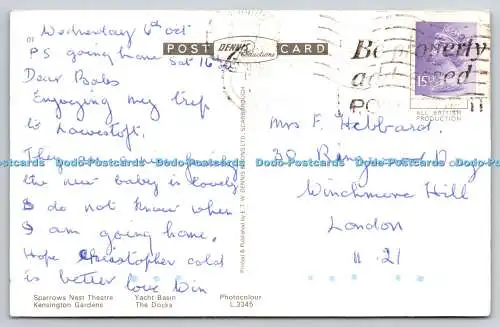 Wednesday 6th Oct
PS going home Sat 16 Oct
POST CARD
DENNIS
Productions
Be properly
addressed
PO
15P
ALL BRITISH
PRODUCTION
Dear Babs
Enjoying my trip
to Lowestoft.
They are
the new baby is lovely
I do not know when
I am going home.
Hope Christopher cold
is better love Win
Mrs F. Hebbard.
38
Winchmore Hill
London
N. 21
Dodo-Postcards Dodo-Postcards Dodo-Postcards Dodo-Postcards Dodo-Postcards
Printed & Published by E. T. W. DENNIS & SONS LTD. SCARBOROUGH
Sparrows Nest Theatre Yacht Basin Photocolour
Kensington Gardens The Docks L.3345